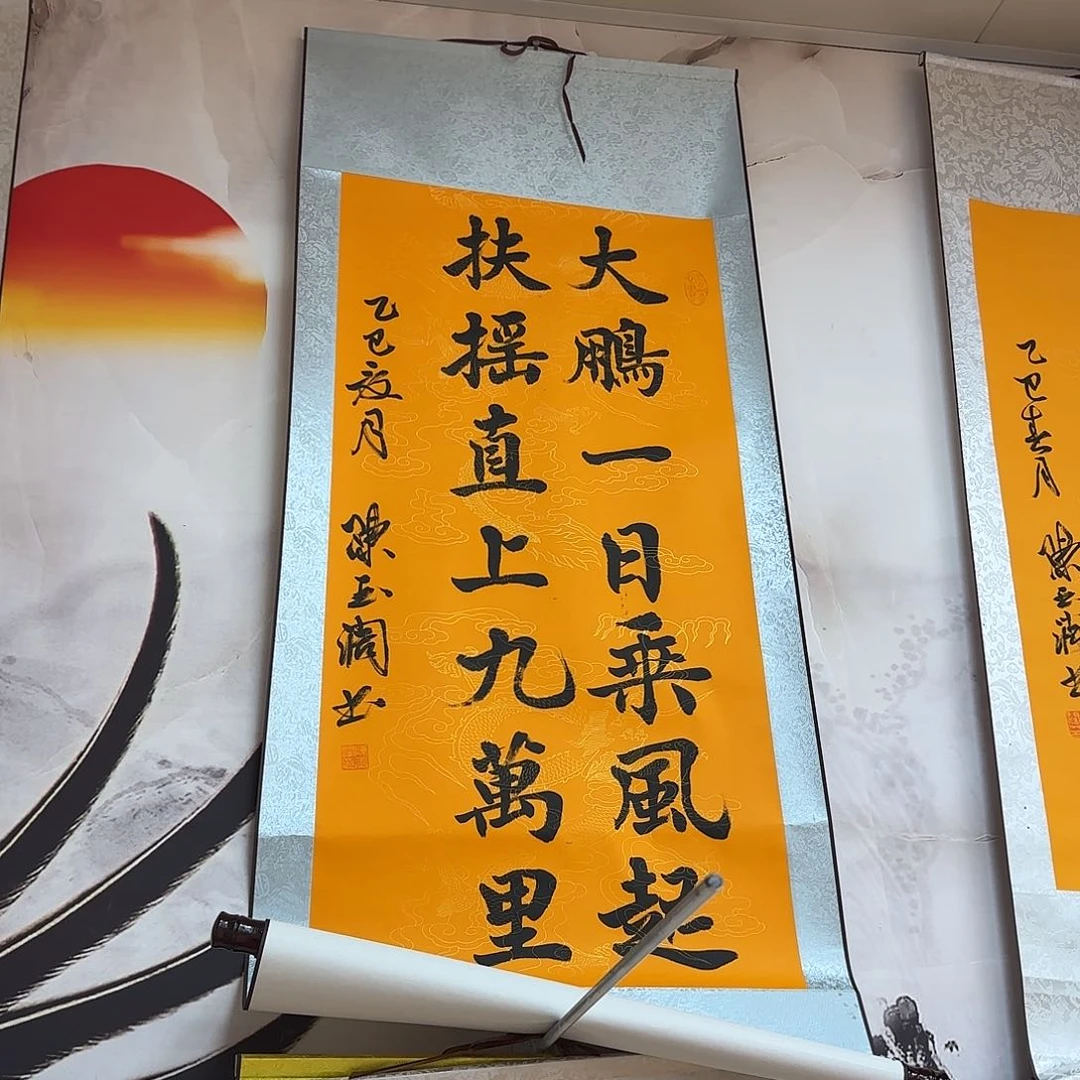 大鹏一日乘風起
扶摇直上九萬里
乙巳夏月 陳玉潤书
乙巳春月 陳玉潤书